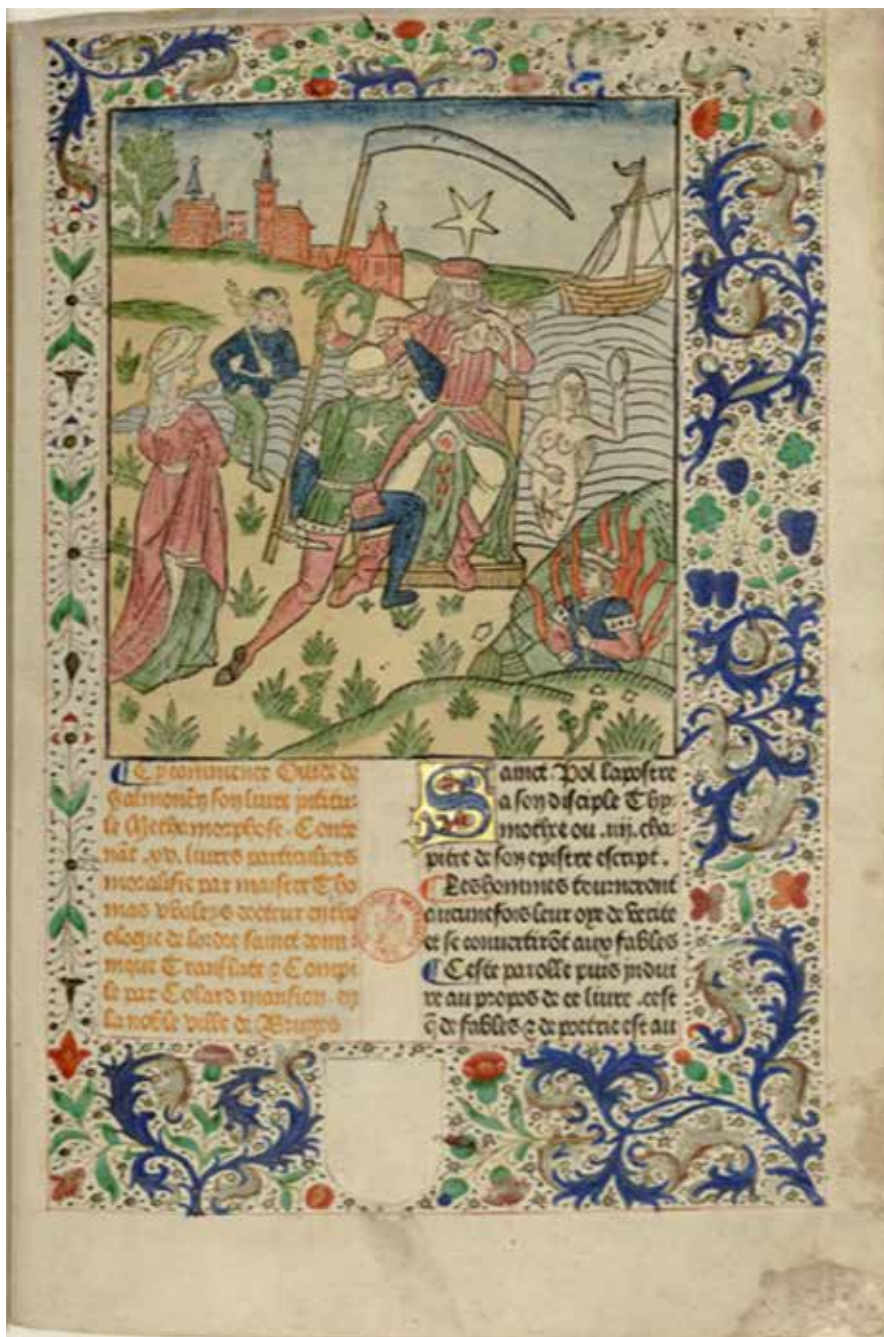 Cy commence Ouide de
Salmonen son liure intitu-
le Methamorphose. Conte
nāt .xv. liures particuliers
moralisie par maistre Tho
mas vvaleys docteur en the
ologie de lordre sainct domi
nique Translate ⁊ Compi
le par Colard mansion en
la noble ville de Bruges
Sainct Pol lapostre
a son disciple Thy-
mothee ou .iiii. cha-
pitre de son epistre escript.
Les hommes tourneront
aucunefois leur oye de verite
et se conuertirōt aux fables
Ceste parolle puis indui
re au propos de ce liure .cest
q̄ de fables ⁊ de poetrie est au